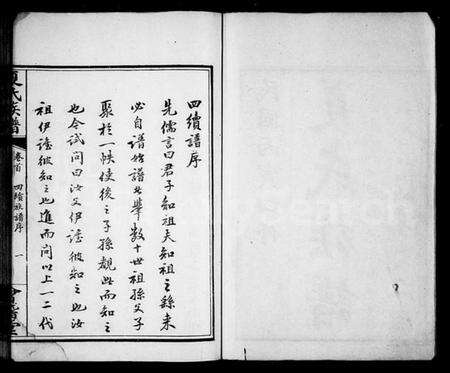 四續譜序
先儒言曰君子知祖夫知祖之錄來
必自譜始譜者舉數十世祖孫父子
聚於一帙使後之子孫觀此而知之
也今試問曰汝父伊誰彼知之也汝
祖伊誰彼知之也進而問以上一二代
氏族譜
卷首
四續族譜序
一